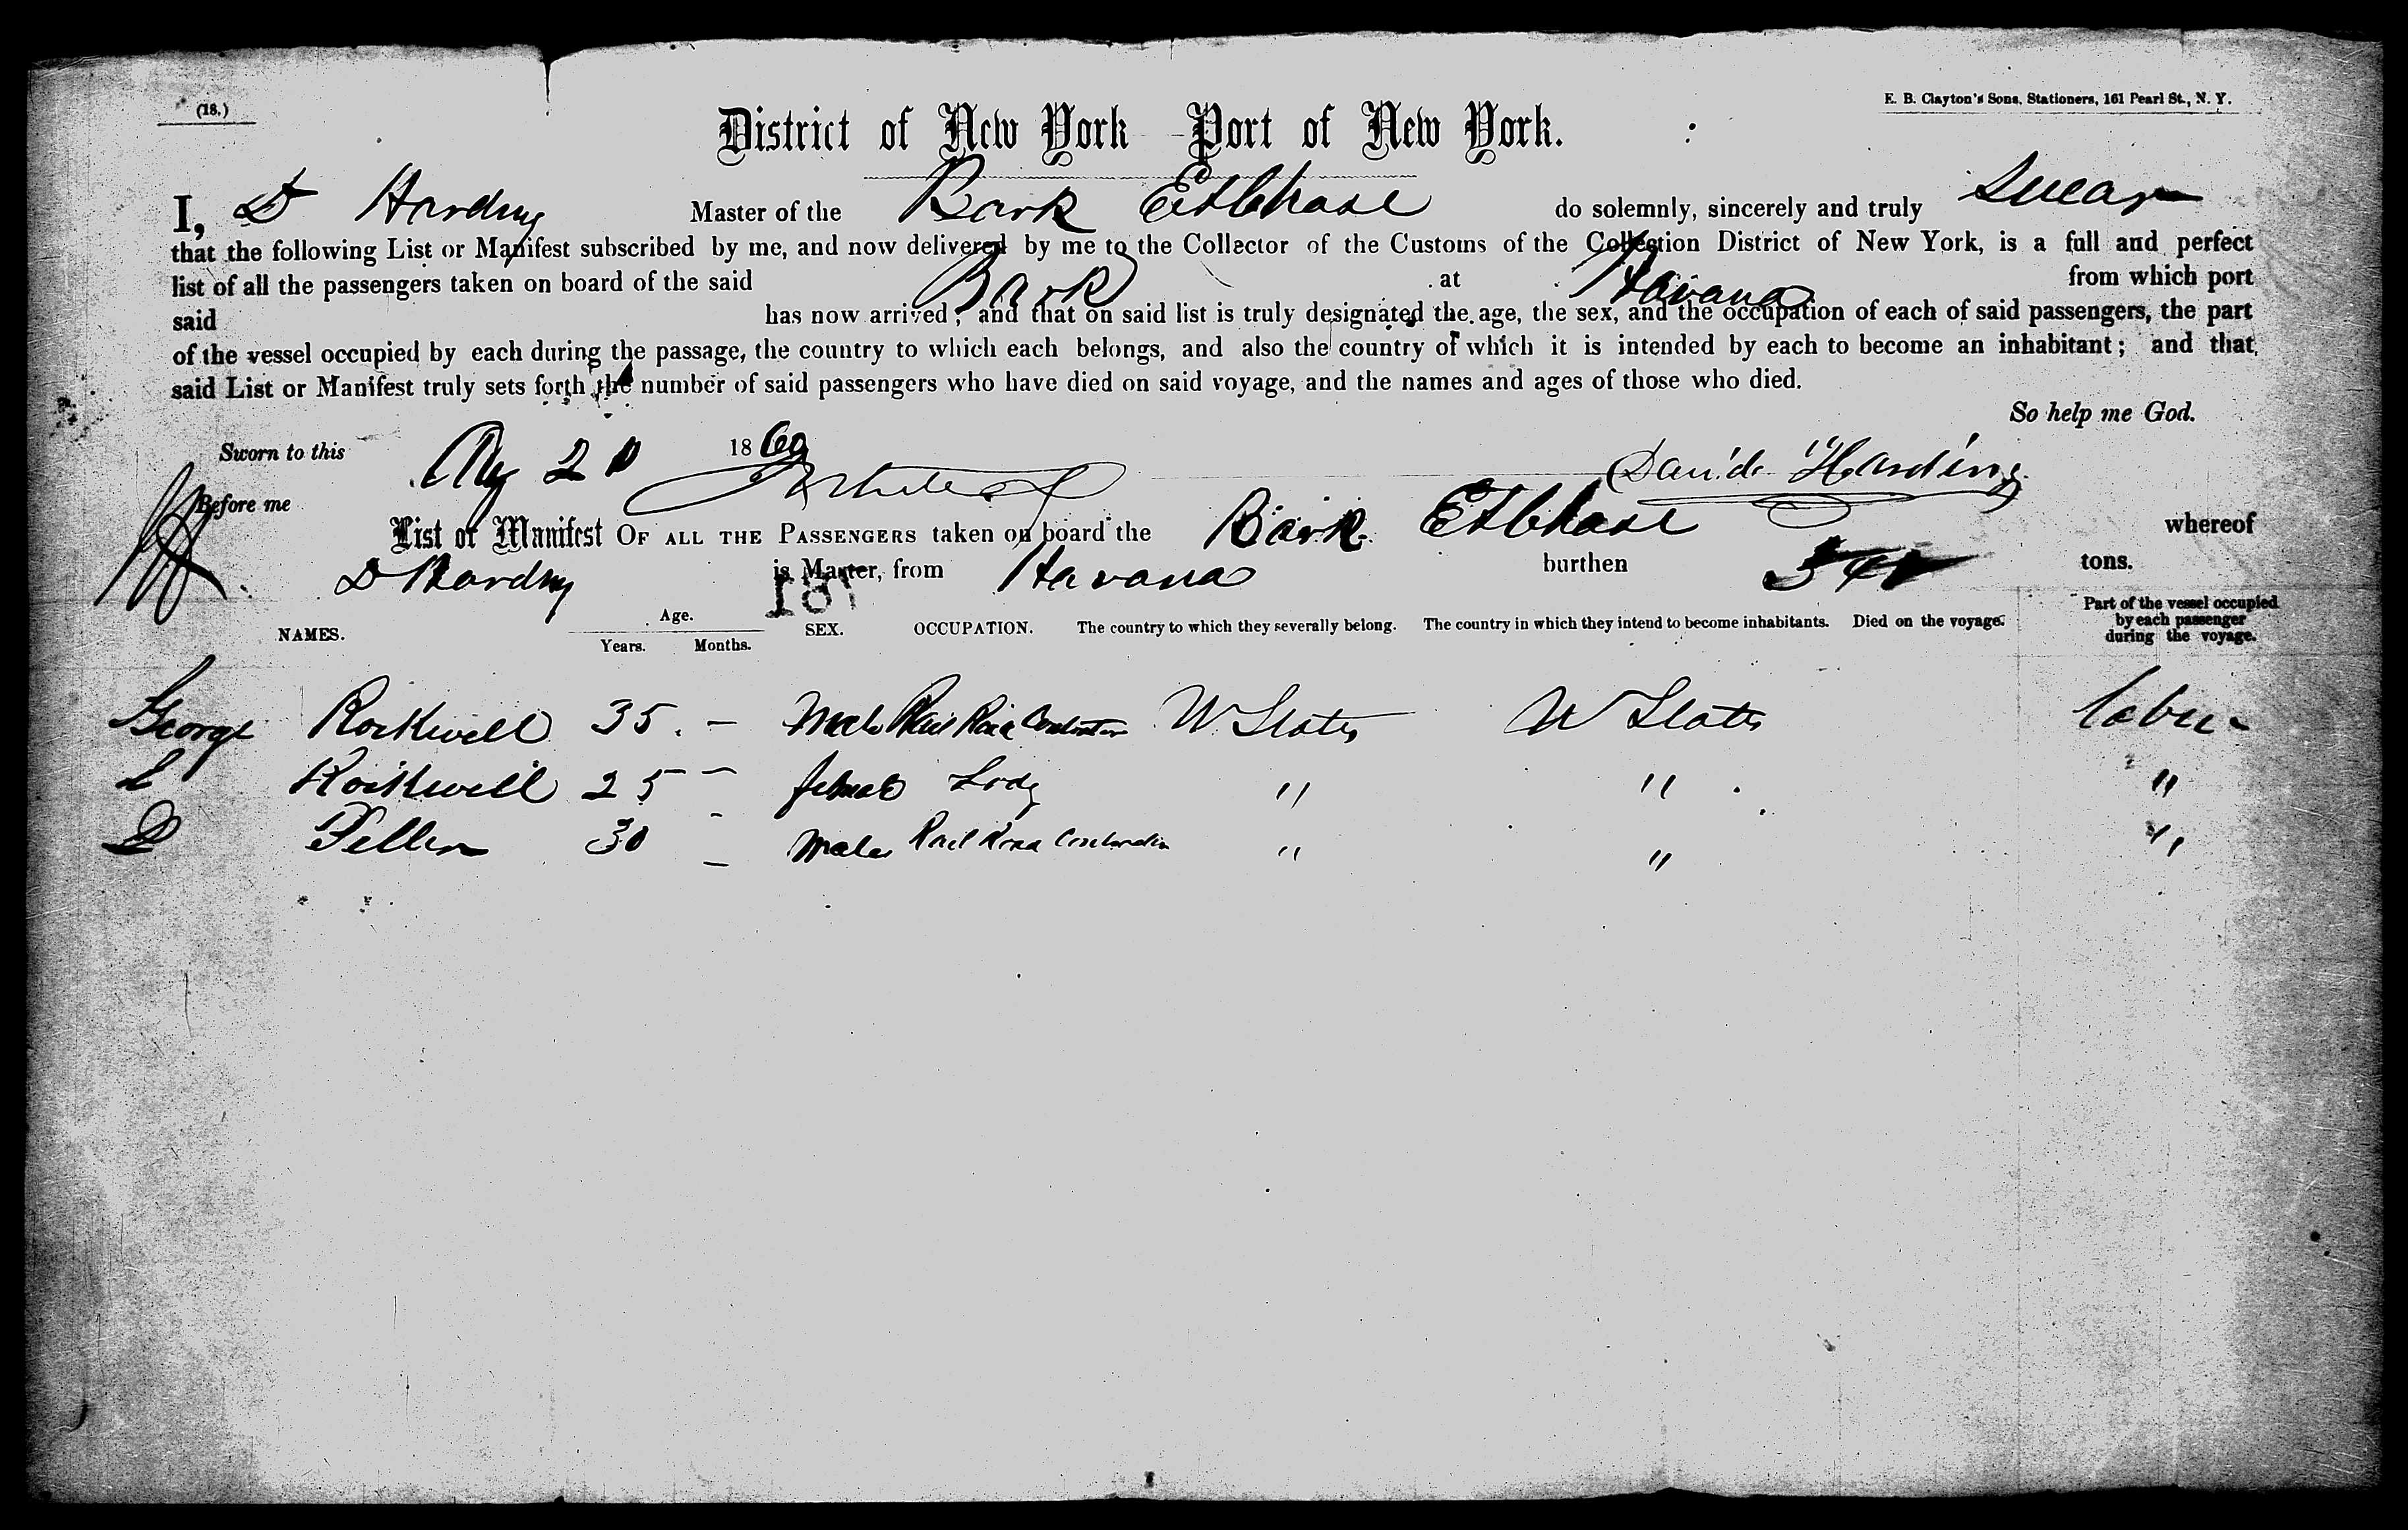 (18.)
E. B. Clayton's Sons, Stationers, 161 Pearl St., N. Y.
District of New York Port of New York.
I, D Harding Master of the Bark do solemnly, sincerely and truly Swear
that the following List or Manifest subscribed by me, and now delivered by me to the Collector of the Customs of the Collection District of New York, is a full and perfect
list of all the passengers taken on board of the said Bark at Havana from which port
said has now arrived; and that on said list is truly designated the age, the sex, and the occupation of each of said passengers, the part
of the vessel occupied by each during the passage, the country to which each belongs, and also the country of which it is intended by each to become an inhabitant; and that
said List or Manifest truly sets forth the number of said passengers who have died on said voyage, and the names and ages of those who died.
So help me God.
Sworn to this 18
David Harding
Before me
List or Manifest OF ALL THE PASSENGERS taken on board the Bark whereof
D Harding is Master, from Havana burthen tons.
NAMES. Age. Years. Months. SEX. OCCUPATION. The country to which they severally belong. The country in which they intend to become inhabitants. Died on the voyage. Part of the vessel occupied by each passenger during the voyage.
George Rockwell 35. — Male Rail Road U States U States
Rockwell 25 — female Lady " " "
D 30 — Male Rail Road " " "